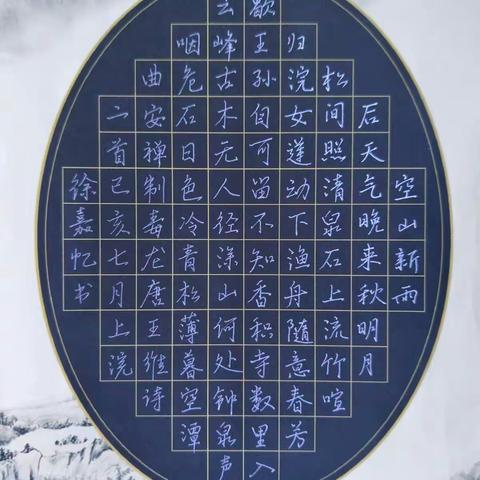 空山新雨
后天气晚来秋明月
松间照清泉石上流竹喧
归浣女莲动下渔舟随意春芳
歇王孙自可留不知香积寺数里入
云峰古木无人径深山何处钟泉声
咽危石日色冷青松薄暮空潭
曲安禅制毒龙唐王维诗
二首已亥七月上浣
徐嘉忆书